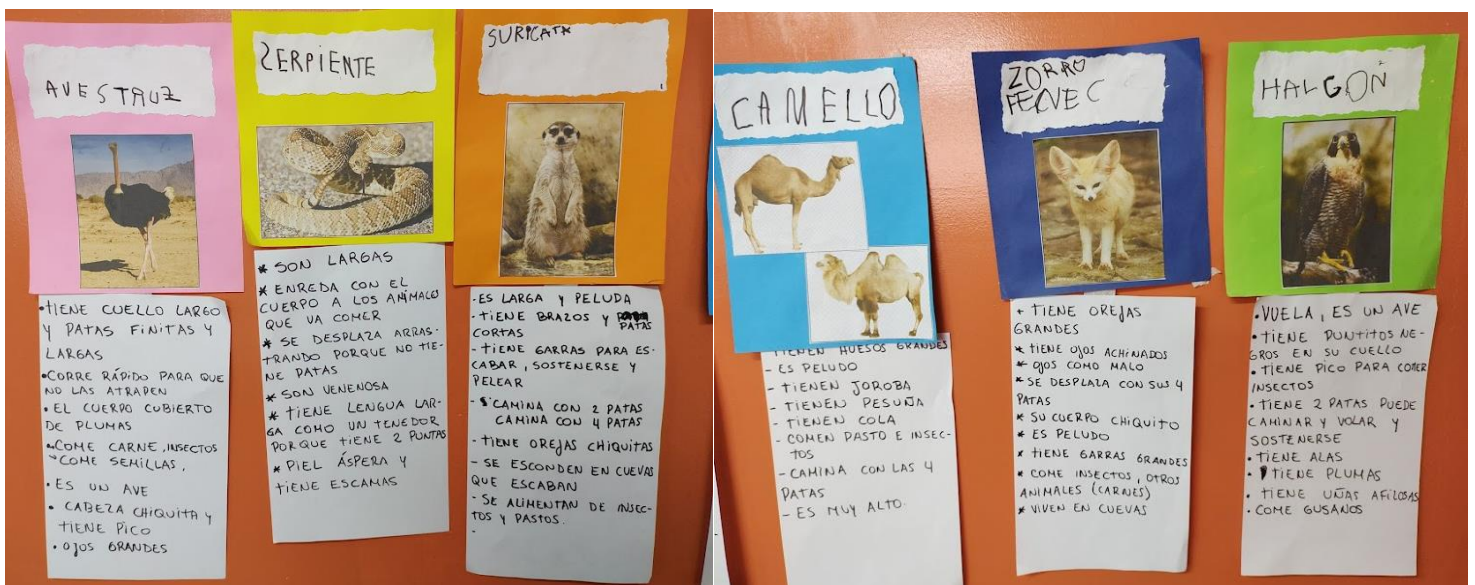 AVESTRUZ
•TIENE CUELLO LARGO
Y PATAS FINITAS Y
LARGAS
•CORRE RÁPIDO PARA QUE
NO LAS ATRAPEN
•EL CUERPO CUBIERTO
DE PLUMAS
•COME CARNE, INSECTOS
COME SEMILLAS,
•ES UN AVE
•CABEZA CHIQUITA Y
TIENE PICO
•OJOS GRANDES
ZERPIENTE
* SON LARGAS
* ENREDA CON EL
CUERPO A LOS ANIMALES
QUE VA COMER
* SE DESPLAZA ARRAS-
TRANDO PORQUE NO TIE-
NE PATAS
* SON VENENOSA
* TIENE LENGUA LAR-
GA COMO UN TENEDOR
PORQUE TIENE 2 PUNTAS
* PIEL ÁSPERA Y
TIENE ESCAMAS
SURICATA
-ES LARGA Y PELUDA
-TIENE BRAZOS Y PATAS
CORTAS
-TIENE GARRAS PARA ES-
CABAR, SOSTENERSE Y
PELEAR
-CAMINA CON 2 PATAS
CAMINA CON 4 PATAS
-TIENE OREJAS CHIQUITAS
-SE ESCONDEN EN CUEVAS
QUE ESCABAN
-SE ALIMENTAN DE INSEC-
TOS Y PASTOS.
-
CAMELLO
TIENEN HUESOS GRANDES
- ES PELUDO
- TIENEN JOROBA
- TIENEN PESUÑA
- TIENEN COLA
- COMEN PASTO E INSEC-
TOS
- CAMINA CON LAS 4
PATAS
- ES MUY ALTO.
ZORRO
FENEC
* TIENE OREJAS
GRANDES
* TIENE OJOS ACHINADOS
* OJOS COMO MALO
* SE DESPLAZA CON SUS 4
PATAS
* SU CUERPO CHIQUITO
* ES PELUDO
* TIENE GARRAS GRANDES
* COME INSECTOS, OTROS
ANIMALES (CARNES)
* VIVEN EN CUEVAS
HALCON
•VUELA, ES UN AVE
•TIENE PUNTITOS NE-
GROS EN SU CUELLO
•TIENE PICO PARA COMER
INSECTOS
•TIENE 2 PATAS PUEDE
CAMINAR Y VOLAR Y
SOSTENERSE
•TIENE ALAS
•TIENE PLUMAS
•TIENE UÑAS AFILOSAS
•COME GUSANOS